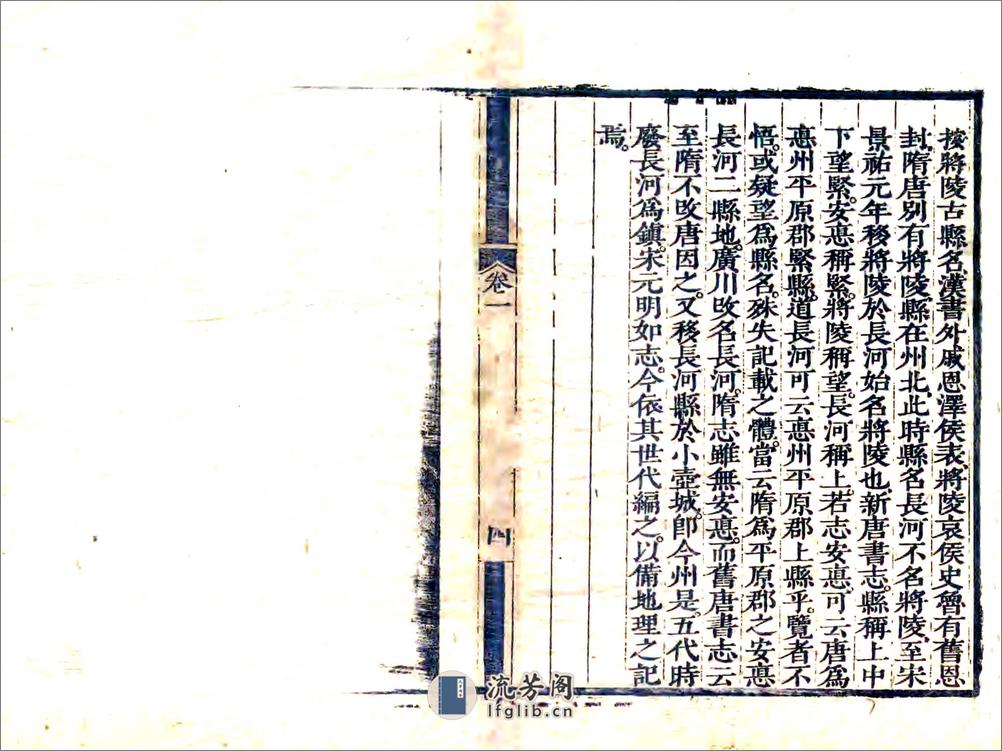 按將陵古縣名漢書外戚恩澤侯表將陵哀侯史曾有舊恩
封隋唐別有將陵縣在州北此時縣名長河不名將陵至宋
景祐元年移將陵於長河始名將陵也新唐書志縣稱上中
下望緊安悳稱緊將陵稱望長河稱上若志安悳可云唐為
悳州平原郡緊縣道長河可云悳州平原郡上縣乎覽者不
悟或疑望為縣名殊失記載之體當云隋為平原郡之安悳
長河二縣地廣川改名長河隋志雖無安悳而舊唐書志云
至隋不改唐因之又移長河縣於小壺城卽今州是五代時
廢長河為鎮宋元明如志今依其世代編之以備地理之記
焉
卷一
四
流芳阁
lfglib.cn